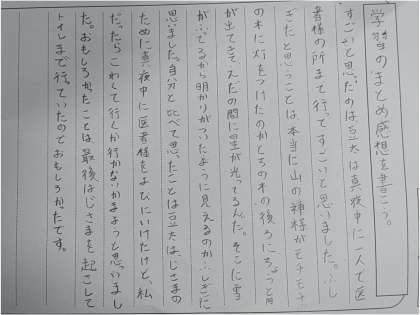 学習のまとめ感想を書こう。
すごいと思ったのは豆太は真夜中に一人で医
者様の所まで行ってすごいと思いました。ふし
ぎだと思うことは、本当に山の神様がモチモチ
の木に灯をつけたのかとちの木の後ろにちょうど月
が出てきてえだの間に星が光ってるんだ。そこに雪
がふってるから明かりがついたように見えるのかふしぎに
思いました。自分と比べて思ったことは豆太は、じさまの
ために真夜中に医者様をよびにいけたけど、私
だったらこわくて行くか行かないかまようと思いまし
た。おもしろかったことは最後はじさまを起こして
トイレまで行っていたのでおもしろかったです。